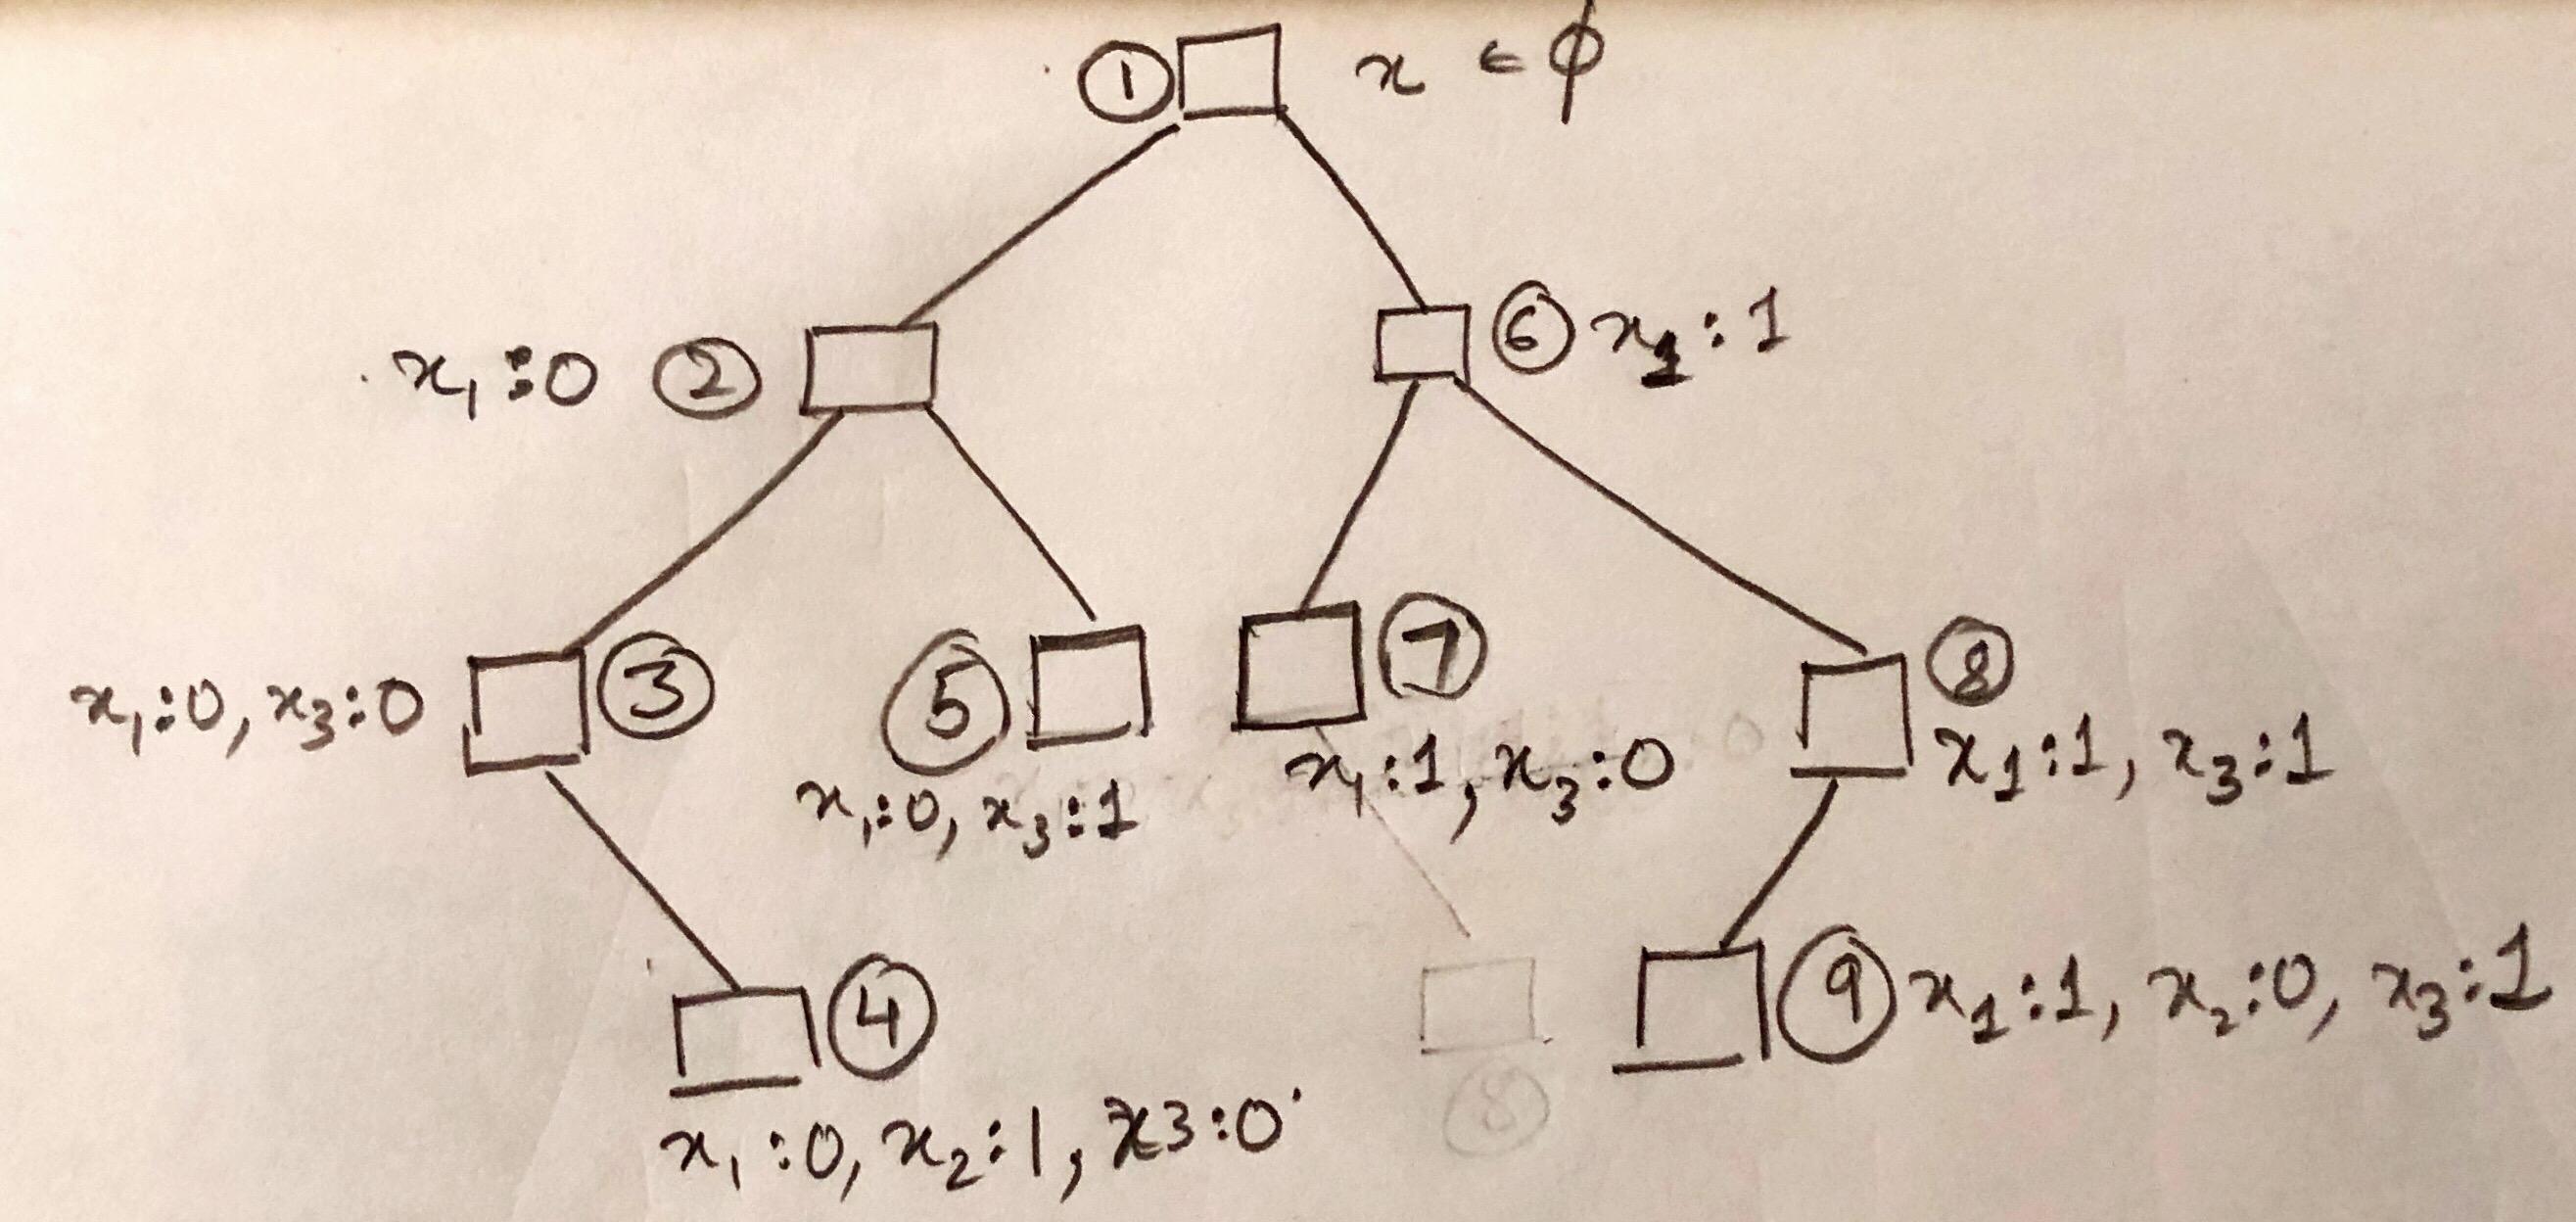 ① x ← ϕ
x₁:0 ②
⑥ x₁:1
x₁:0, x₃:0 ③
⑤
x₁:0, x₃:1
⑦
x₁:1, x₃:0
⑧
x₁:1, x₃:1
④
x₁:0, x₂:1, x3:0
⑨ x₁:1, x₂:0, x₃:1
⑧